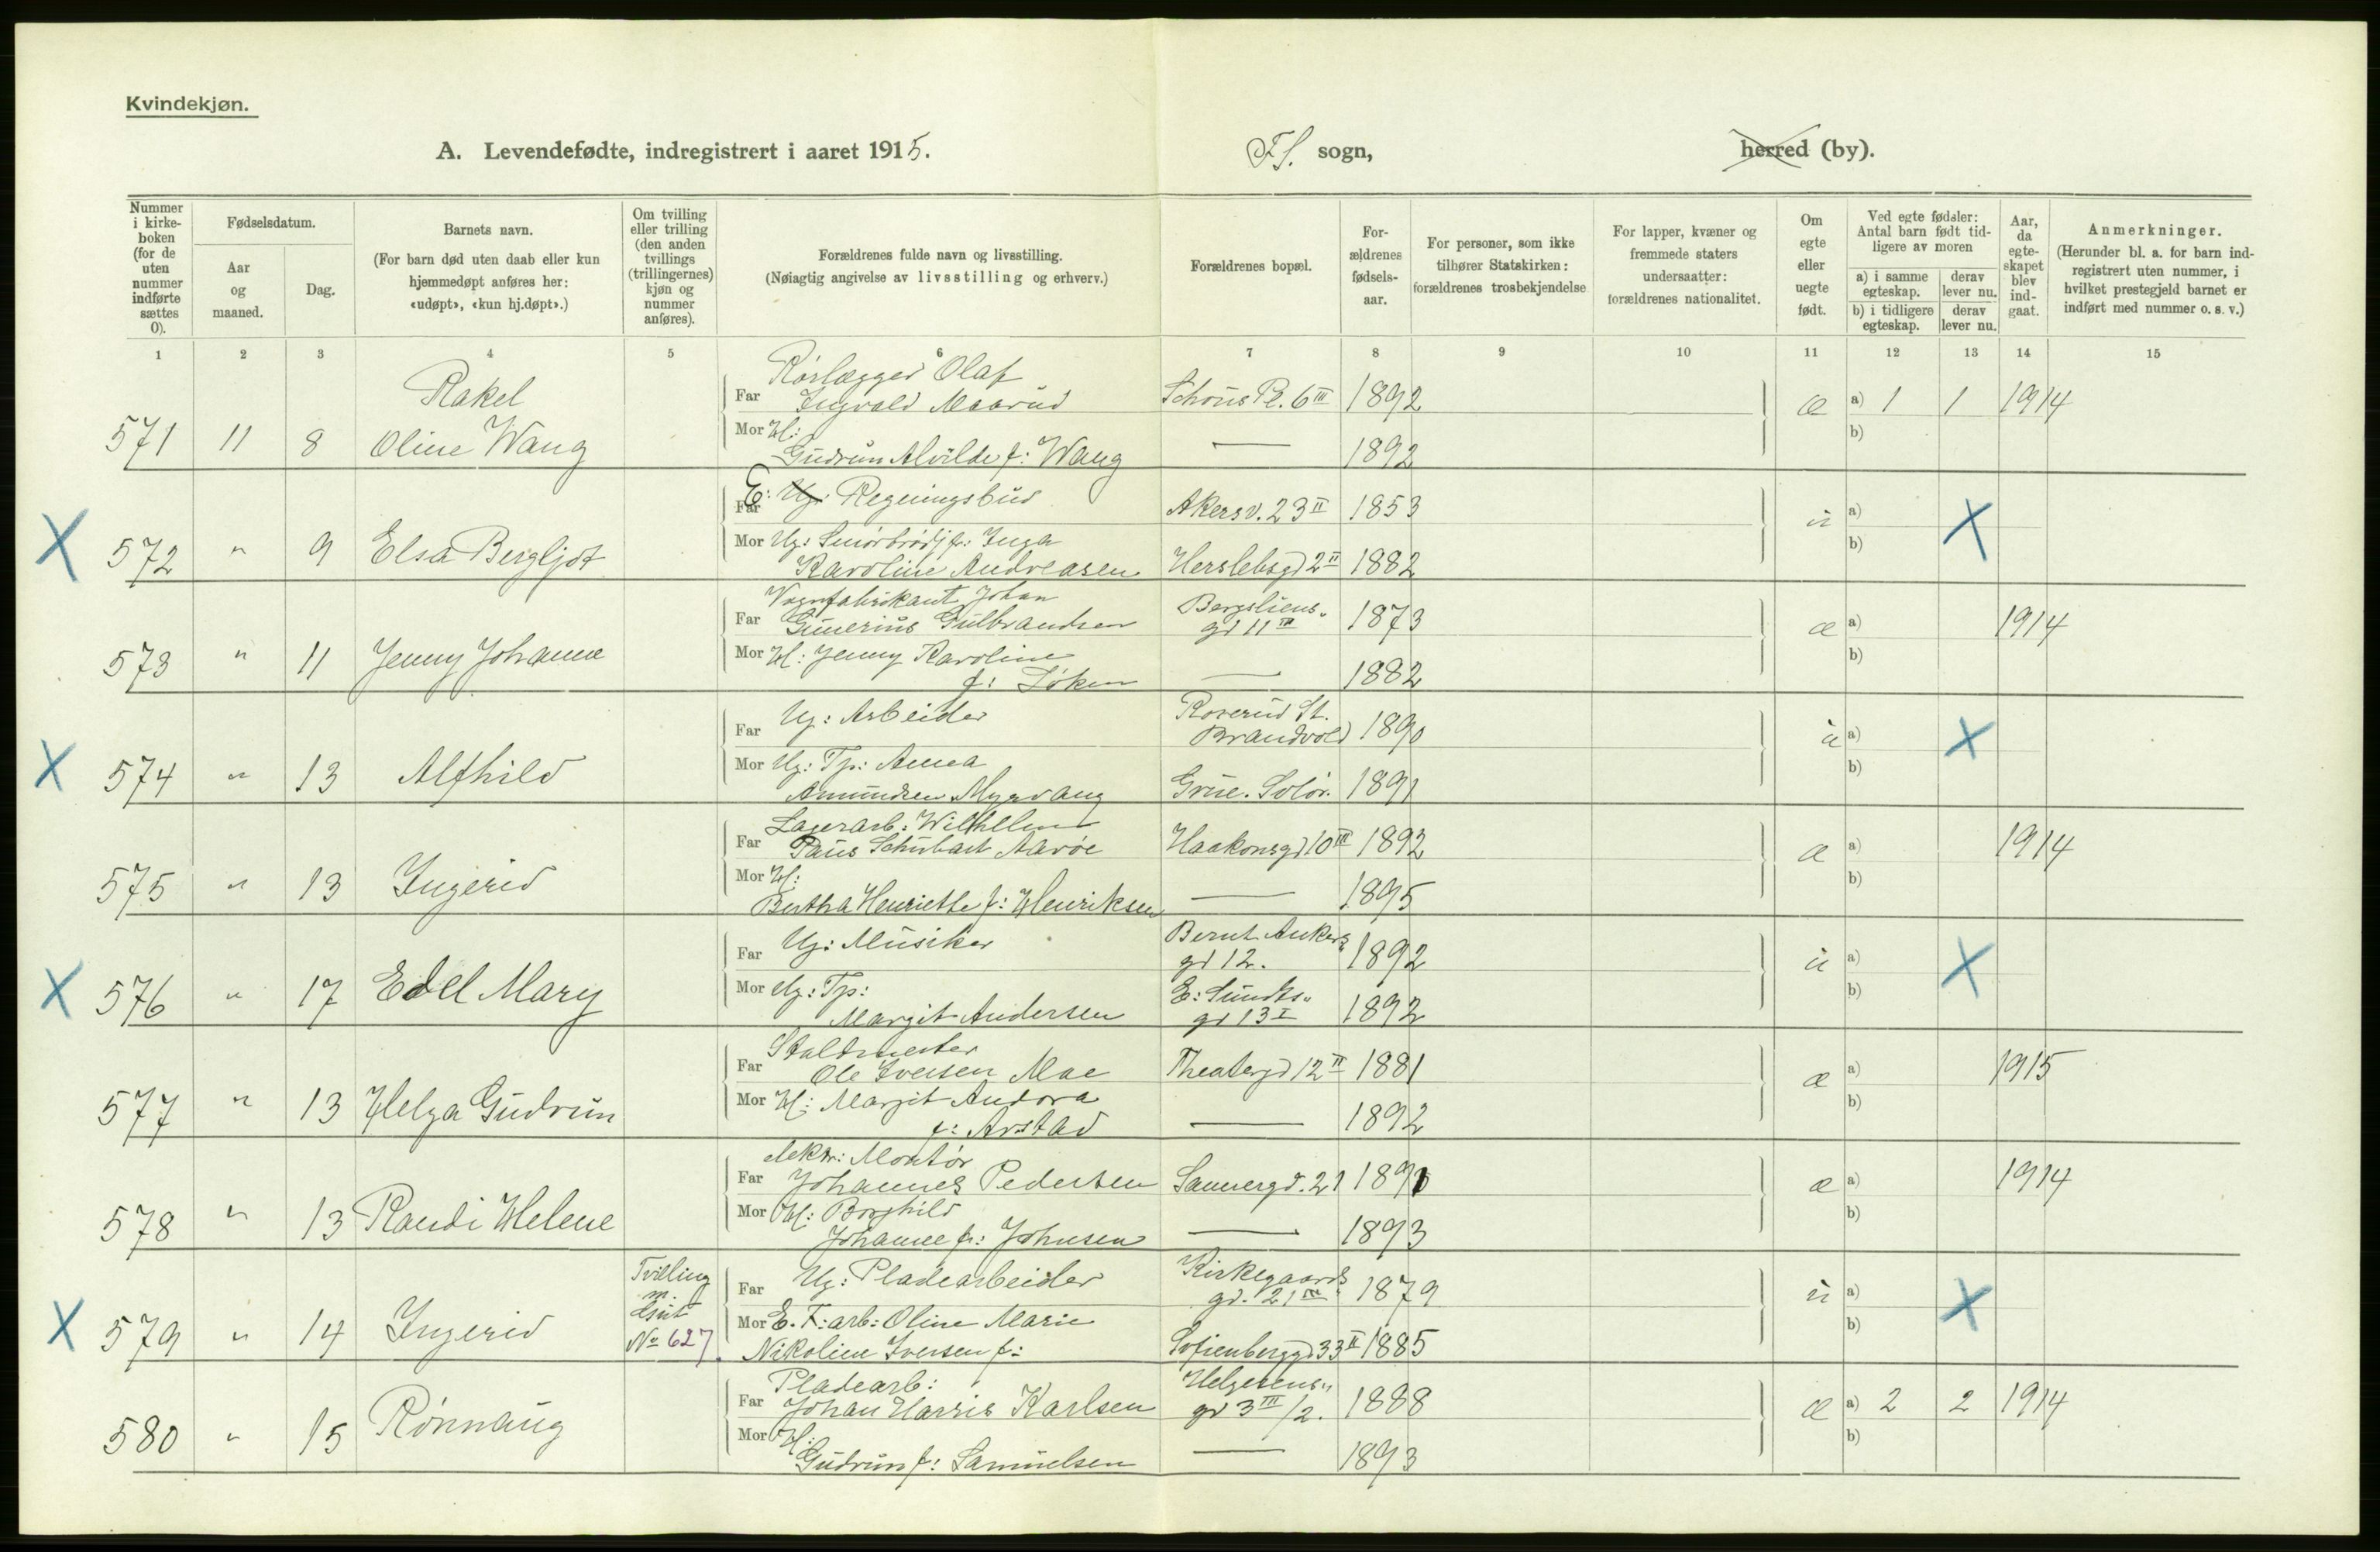 Kvindekjøn.
A. Levendefødte, indregistrert i aaret 1915.
FS. sogn,
herred (by).
Nummer i kirkeboken (for de uten nummer indførte sættes 0).
Fødselsdatum.
Aar og maaned.
Dag.
Barnets navn.
(For barn død uten daab eller kun hjemmedøpt anføres her: «udøpt», «kun hj.døpt».)
Om tvilling eller trilling (den anden tvillings (trillingernes) kjøn og nummer anføres).
Forældrenes fulde navn og livsstilling.
(Nøiagtig angivelse av livsstilling og erhverv.)
Forældrenes bopæl.
Forældrenes fødselsaar.
For personer, som ikke tilhører Statskirken: forældrenes trosbekjendelse
For lapper, kvæner og fremmede staters undersaatter: forældrenes nationalitet.
Om egte eller uegte født.
Ved egte fødsler: Antal barn født tidligere av moren
a) i samme egteskap.
derav lever nu.
b) i tidligere egteskap.
derav lever nu.
Aar, da egteskapet blev indgaat.
Anmerkninger.
(Herunder bl. a. for barn indregistrert uten nummer, i hvilket prestegjeld barnet er indført med nummer o. s. v.)
1 2 3 4 5 6 7 8 9 10 11 12 13 14 15
571 11 8 Rakel Oline Wang
Far Rørlægger Olaf
Ingvald Maarud Schous Pl. 6 III 1892 æ a) 1 1 1914
Mor H:
Gudrun Alvilde f: Wang — 1892 b)
X 572 " 9 Elsa Bergljot
Far E: Ug: Regningsbud Akersv. 23 II 1853 u a) X
Mor Ug: Smørbrødjfr: Inga b)
Karoline Andreasen Herslebsgd 2 II 1882
573 " 11 Jenny Johanne
Vognfabrikant Johan
Far Gunerius Gulbrandsen Bergsliens gd 11 III 1873 æ a) 1914
Mor H: Jenny Karoline b)
f: Løken — 1882
X 574 " 13 Alfhild
Far Ug: Arbeider Roverud St. Brandvold 1890 u a) X
Mor Ug: Tp: Anna b)
Amundsen Myrvang Grue. Solør. 1891
575 " 13 Ingerid
Lagerarb: Wilhelm
Far Paus Schubart Aarøe Haakonsgd 10 III 1892 æ a) 1914
Mor H: b)
Bertha Henriette f: Henriksen — 1895
X 576 " 17 Edel Mary
Far Ug: Musiker Bernt Ankers gd 12. 1892 u a) X
Mor Ug: Tp: b)
Margit Andersen E: Sundts gd 13 I 1892
577 " 13 Helga Gudrun
Staldmester
Far Ole Iversen Moe Theatergd 12 III 1881 æ a) 1915
Mor H: Margit Andora b)
f: Arstad — 1892
578 " 13 Randi Helene
elektr: Montør
Far Johannes Pedersen Sannergd. 21 1891 æ a) 1914
Mor H: Borghild b)
Johanne f: Johnsen — 1893
X 579 " 14 Ingerid Tvilling m. Gut No 627.
Far Ug: Pladearbeider Kirkegaards gd. 21 III 1879 u a) X
Mor E. F: arb: Oline Marie b)
Nikoline Iversen f: Sofienberggd 33 II 1885
580 " 15 Rønnaug
Pladearb:
Far Johan Harris Karlsen Helgesens gd 3 III/2. 1888 æ a) 2 2 1914
Mor H: b)
Gudrun f: Samuelsen — 1893